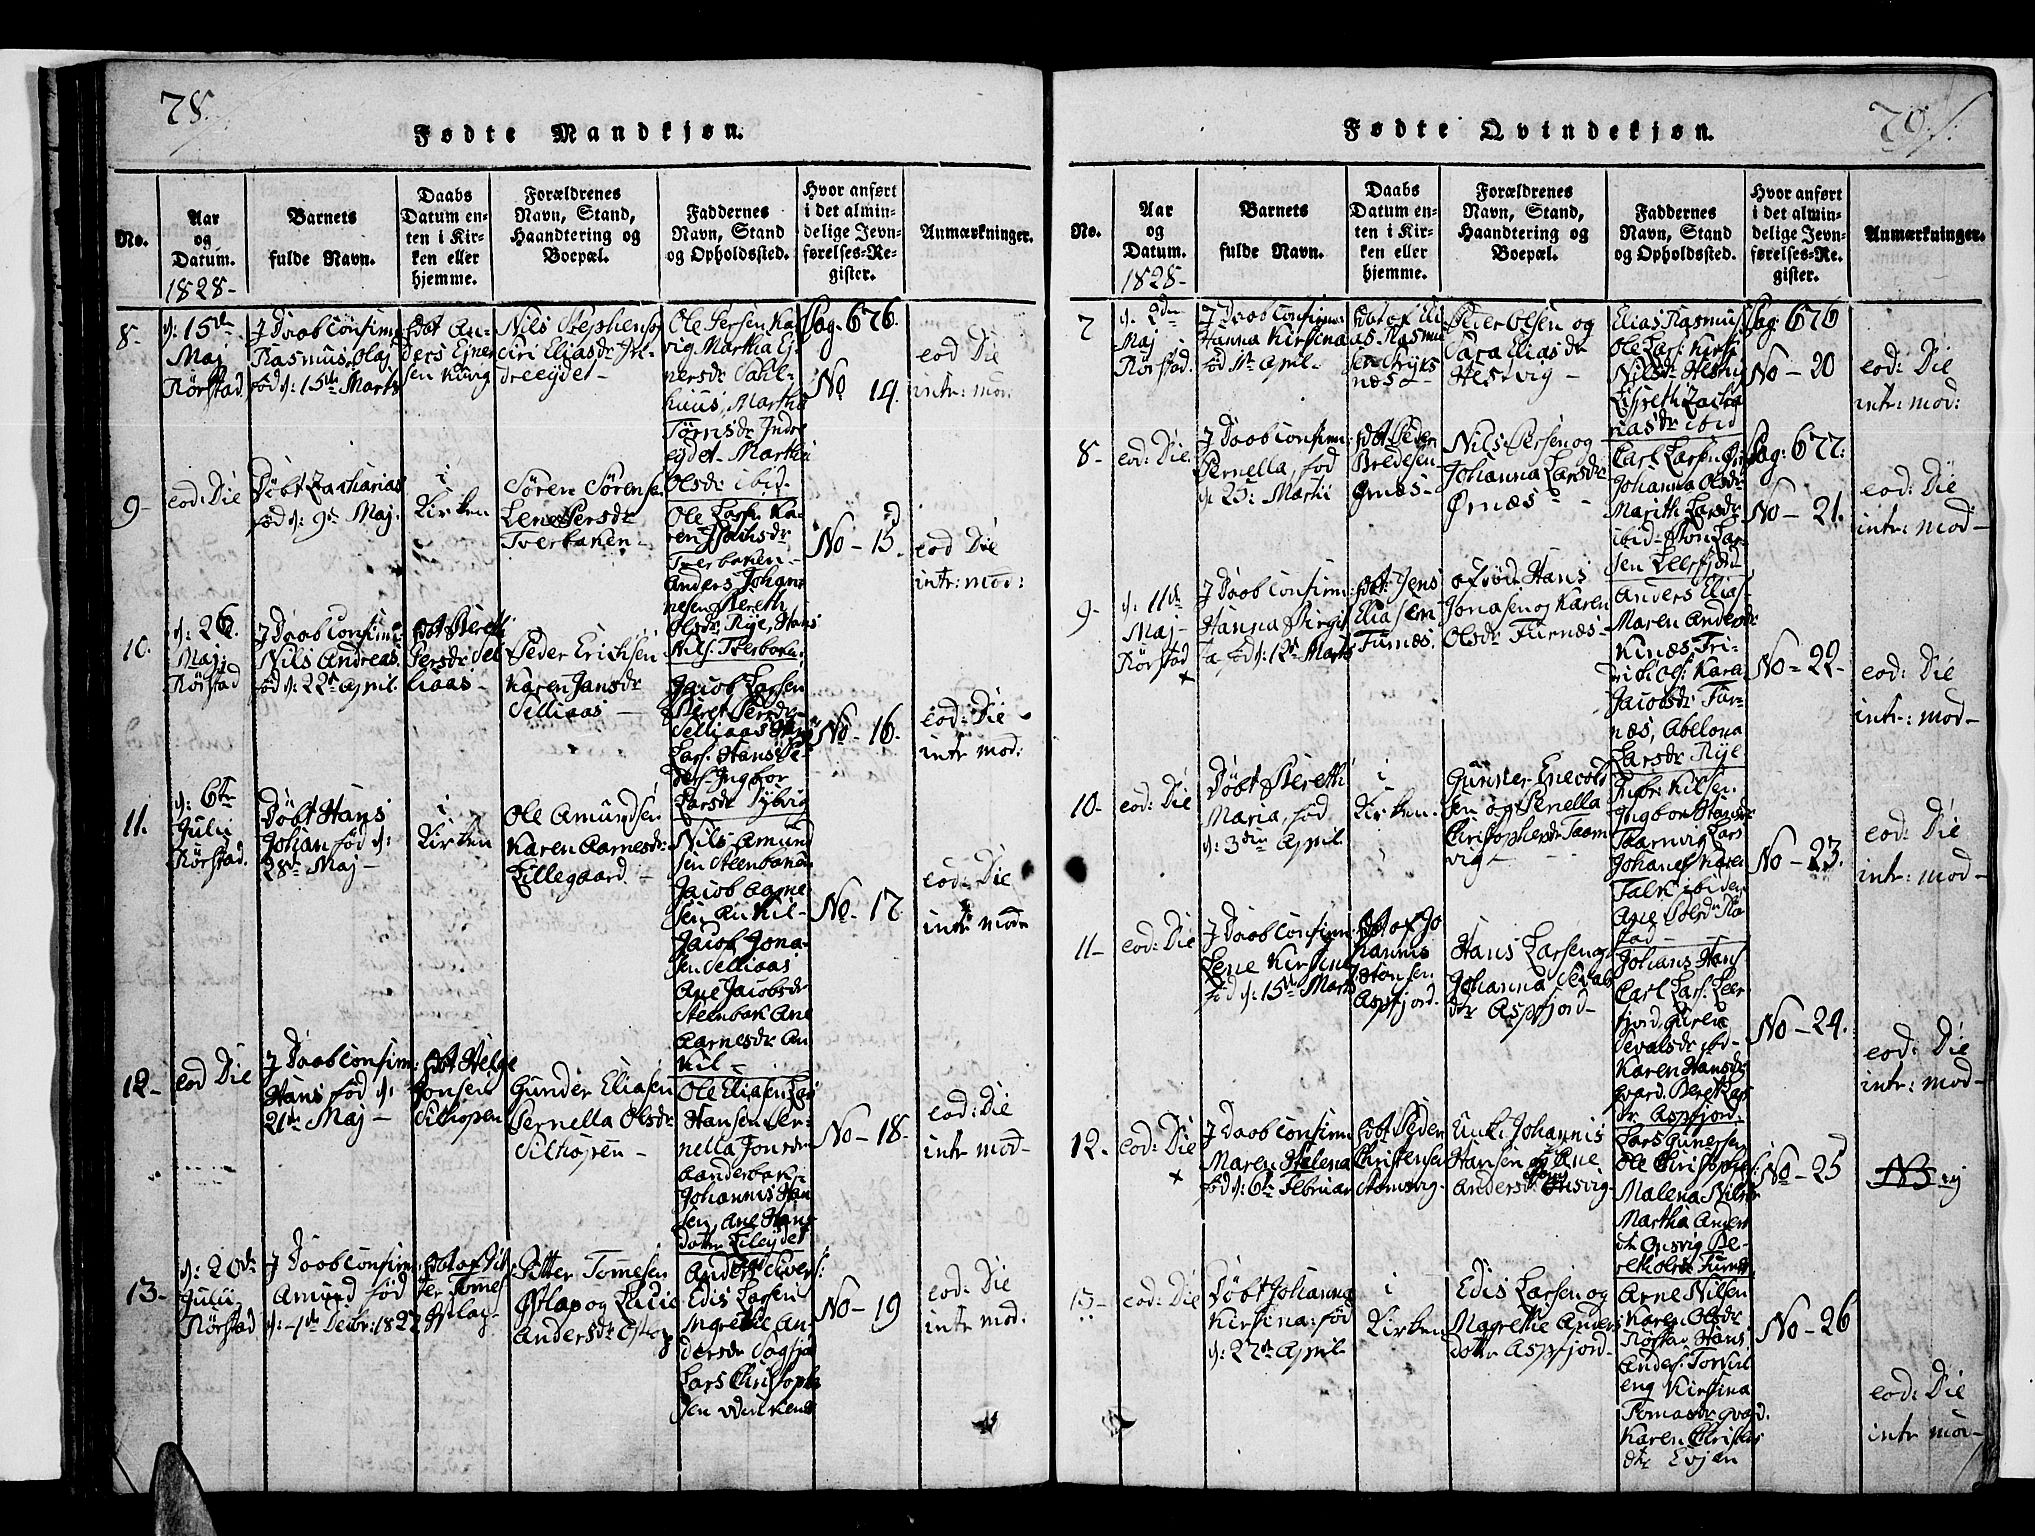 78.
Fødte Mandkjøn.
No.
Aar
og
Datum.
1828-
Barnets
fulde Navn.
Daabs
Datum en-
ten i Kir-
ken eller
hjemme.
Forældrenes
Navn, Stand,
Haandtering og
Boepæl.
Faddernes
Navn, Stand
og Opholdssted.
Hvor anført
i det almin-
delige Jevn-
førelses-Re-
gister.
Anmærkninger.
8-
d: 15de
Maj
Rørstad
J Daab Confirm:
Rasmus Olaj
fød d: 15de Marts
døbt An-
ders Ejner
sen
Nils Stephensen
Siri Eliasdr In-
dreeydet-
Ole Persen
vig. Martha Ej-
nersdr
Martha
Tørrisdr Indre
eydet- Martha
Olsdr ibid-
Pag: 676.
No 14.
eod Die
intr: mod:
9-
eod: Die
Døbt Zacharias
fød d: 9de Maj.
i
Kirken
Søren Sørensen
Lene Persdr
Tverbaken-
Ole Lars:
Tverbaken-
Anders Johan-
nesen Bereth
Olsdr Rije, Hans
Nils: Tverbak:
No- 15.
eod Die
intr: mod:
10.
d: 26.
Maj
Rørstad
J Daab Confirm:
Nils Andreas
fød d: 22de April
døbt Bereth
Persdr Sel
liaas-
Peder Erichsen
Karen Jansdr
Selliaas-
Jacob Larsen
Beret Persdr
Selliaas Hans
Lars: Hans Pe-
ders: Ingbor
Larsdr Sybvig
No- 16.
eod: Die
intr mod:
11.
d: 6te
Julii
Rørstad.
Døbt Hans
Johan fød d:
28de Maj-
i
Kirken
Ole Amundsen
Karen Aarnesdr:
Lillegaard-
Nils Amund
sen Steenbakan
Jacob Aarne
sen
Jacob Jona-
sen Selliaas
Ane Jacobsdr
Steenbak Ane
Aarnesdr An
kil-
No- 17
eod: Die
intr mod:
12-
eod Die
J Daab Confirm:
Hans fød d:
21de Maj-
døbt Helge
Jonsen
Silhopen
Gunder Eliasen
Pernella Olsdr
Silhopen-
Ole Eliasen
Hansen Per-
nella Jonsdr
Johannis Han
sen, Ane Hans
dotter
No- 18-
eod: Die
intr mod-
13-
d: 20de
Julii
Rørstad
J Daab Confirm:
Amund fød
d: 1de Decbr: 1827
døbt af Pit
ter Tomme
Østlap-
Pitter Tomesen
Østlap og Lucie
Andersdr
Anders Siver
Edis Larsen
Mgrethe An-
dersdr
Lars Christoph
sen
No- 19
eod: Die
intr mod:
79.
Fødte Qvindekjøn.
No.
Aar
og
Datum.
1828-
Barnets
fulde Navn.
Daabs
Datum en-
ten i Kir-
ken eller
hjemme.
Forældrenes
Navn, Stand,
Haandtering og
Boepæl.
Faddernes
Navn, Stand
og Opholdssted.
Hvor anført
i det almin-
delige Jevn-
førelses-Re-
gister.
Anmærkninger.
7
d: 2den
Maj
Rørstad.
J Daab Confirm:
Hanna Kirstina
fød 1te April-
døbt af Eli
as Rasmu
sen
næs-
Peder Olsen og
Sara Eliasdr
Hestvig-
Elias Rasmus
Ole Lars: Kirst
Nilsdr Hestvi
Lisbeth Zacha
riasdr ibid
Pag: 676
No- 20
eod: Die
intr: mod:
8-
eod: Die.
J Daab Confirm:
Pernella, fød
d: 25: Marti
døbt Peder
Bredesen
Ørnæs-
Nils Persen og
Johanna Larsdr
Ørnæs-
Carl Larsen
Johanna Olsdr
Marith Larsdr
ibid-
sen Leerfjord
Pag: 677:
No- 21.
eod: Die
intr: mod-
9-
d: 11de
Maj-
Rørstad
x
J Daab Confirm:
Hanna Birgit
ta fød d: 12de Marts
døbt Jens
Eliasen
Furnæs.
Hans
Jonasen og Karen
Olsdr Furnæs-
Anders Elias
Maren Andersdr
Kinæs Fri-
Jacobsdr Fur-
næs, Abelona
Larsdr Rije
No- 22-
eod: Die
intr: mod-
10-
eod: Die
Døbt Bereth
Maria, fød
d: 3die April
i
Kirken
Gunder Enevold
sen og Penella
Christophersdr Taarn
vig-
Nilsen
Ingbor Hansdr
Taarnvig Lars
Johanes: Karen
Falk ibiden
Ane
No- 23.
eod: Die
intr: mod-
11-
eod: Die
J Daab Confirm:
Lene Kirstine
fød d: 15de Marts
døbt af Jo
hannis
Hansen
Aspfjord.
Hans Larsen og
Johanna Sivals
dtr Aspfjord-
Johans Hans
Carl Lars: Leer-
fjord
Sevalsdr ibd-
Karen Hansdr
Beret Lars
dr Aspfjord.
No- 24.
eod: Die
intr: mod-
12.
eod: Die
x
J Daab Confirm
Maren Helena
fød d: 6te Februar
døbt Peder
Christensen
Unk: Johannis
Hansen og Ane
Andersdr Onsvig-
Lars Gunersen
Ole Christophe
Malena Nilsdr
Martha Anders
dtr Onsvig Be-
reth Olsdr Furnæs
No- 25
NB
13-
eod: Die
Døbt Johanna
Kirstina: fød
d: 22de April
i
Kirken
Edis Larsen og
Magrethe Anders
dotter Aspfjord-
Arne Nilsen
Karen Olsdr
Rørstad Hans
Anders: Torkil
eng Kirstina
Tomasdr
Karen Christens
dtr Evjen
No- 26
eod: Die
intr mod-